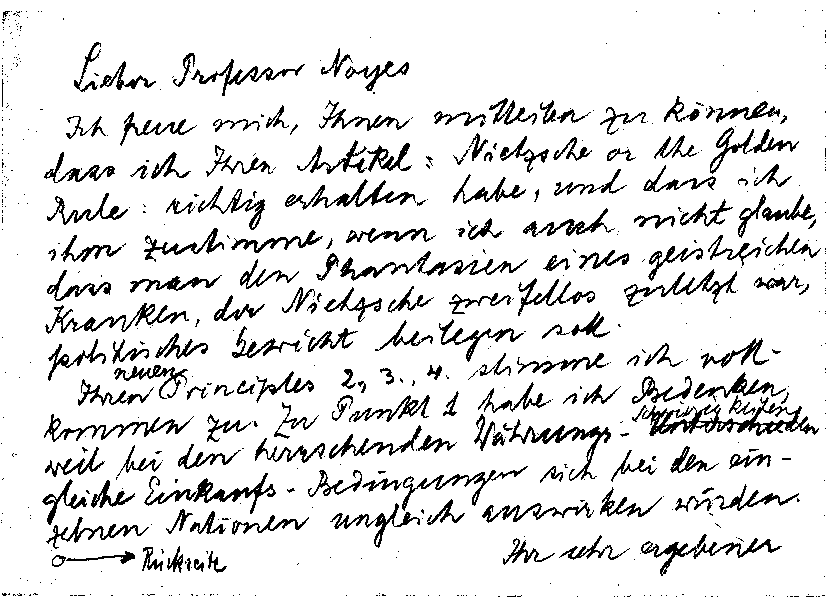 Lieber Professor Noyes
Ich freue mich, Ihnen mitteilen zu können,
dass ich Ihren Artikel: Nietzsche or the Golden
Rule: richtig erhalten habe, und dass ich
ihm zustimme, wenn ich auch nicht glaube,
dass man den Phantasien eines geistreichen
Kranken, der Nietzsche zweifellos zuletzt war,
politisches Gewicht beilegen soll.
neuen
Ihren Principles 2, 3., 4. stimme ich voll-
kommen zu. Zu Punkt 1 habe ich Bedenken,
schwierigkeiten
weil bei den herrschenden Währungs-Unterschieden
gleiche Einkaufs-Bedingungen sich bei den ein-
zelnen Nationen ungleich auswirken würden.
Ihr sehr ergebener
Rückseite